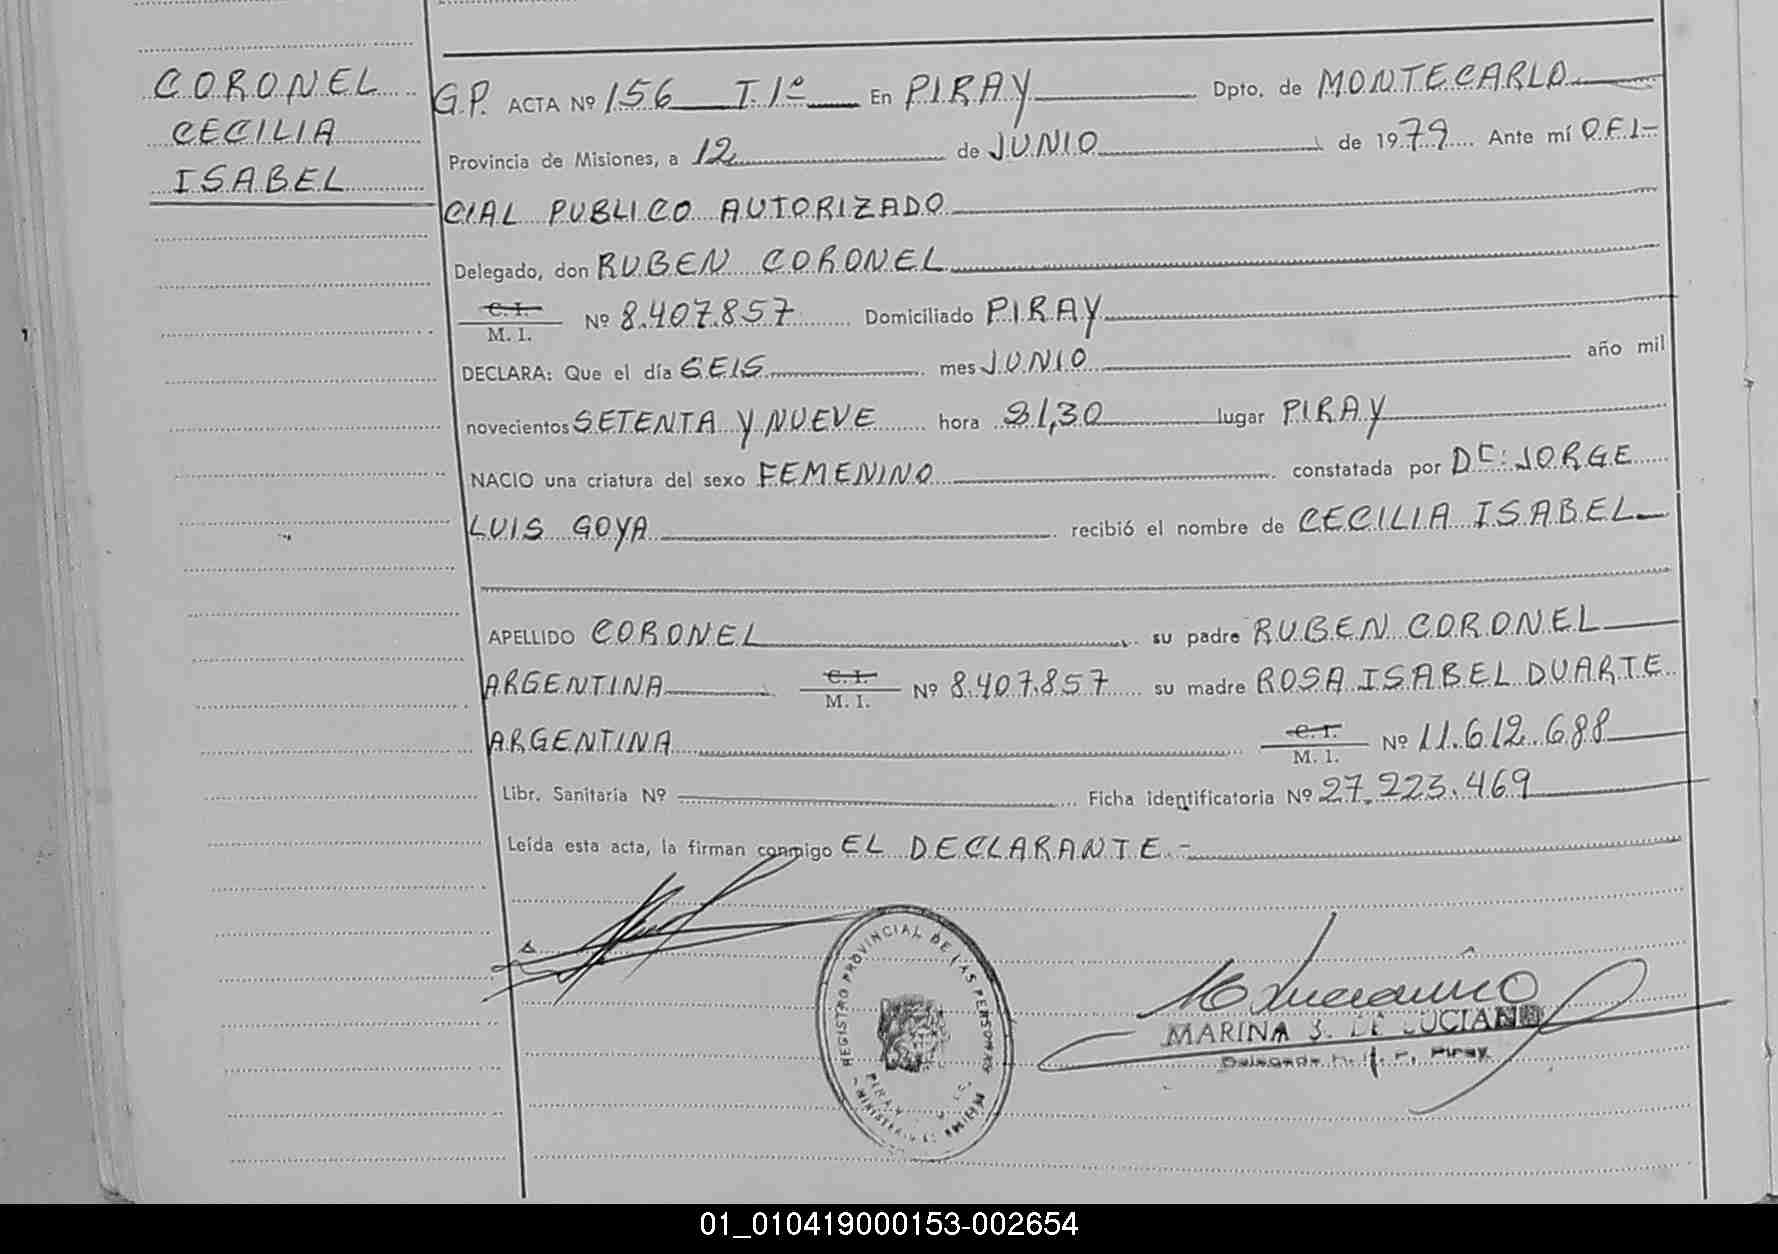 CORONEL
CECILIA
ISABEL
G.P. ACTA Nº 156 T.1º En PIRAY Dpto. de MONTECARLO
Provincia de Misiones, a 12 de JUNIO de 1979 Ante mí OFI-
CIAL PUBLICO AUTORIZADO
Delegado, don RUBEN CORONEL
C.I.
M. I. Nº 8.407.857 Domiciliado PIRAY
DECLARA: Que el día SEIS mes JUNIO año mil
novecientos SETENTA Y NUEVE hora 21,30 lugar PIRAY
NACIO una criatura del sexo FEMENINO constatada por Dr: JORGE
LUIS GOYA recibió el nombre de CECILIA ISABEL
APELLIDO CORONEL su padre RUBEN CORONEL
ARGENTINA C.I.
M. I. Nº 8.407.857 su madre ROSA ISABEL DUARTE
ARGENTINA C.I.
M. I. Nº 11.612.688
Libr. Sanitaria Nº Ficha identificatoria Nº 27.223.469
Leída esta acta, la firman conmigo EL DECLARANTE.-
REGISTRO PROVINCIAL DE LAS PERSONAS
PIRAY
MARINA S. DE LUCIANO
Delegada R. P. Piray
01_010419000153-002654